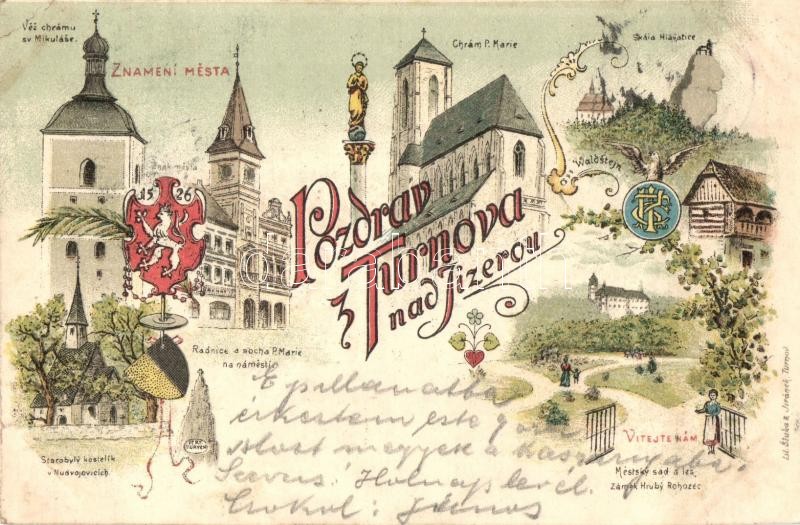 Věž chrámu
sv Mikuláše.
ZNAMENÍ MĚSTA
Chrám P. Marie
Skála Hlavatice
Znak města
1526
Waldštejn
Pozdrav
z Turnova
nad Jizerou
Radnice a socha P. Marie
na náměstí
Starobylý kostelík
v Nudvojovicích.
VÍTEJTE NÁM
Městský sad a les,
Zámek Hrubý Rohozec
Lit. Šluka & Jiránek, Turnov
E pillanatba
érkeztem este
Most megyek a kaszárnyába.
Servus! Holnap levél.
Csókol: János